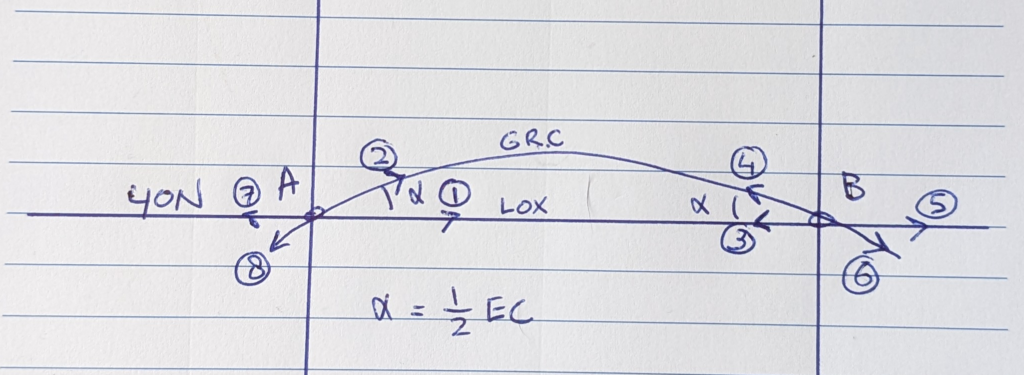 GRC
② ④
40N ⑦ A α ① LOX α B ⑤
③
⑧ ⑥
α = 1/2 EC